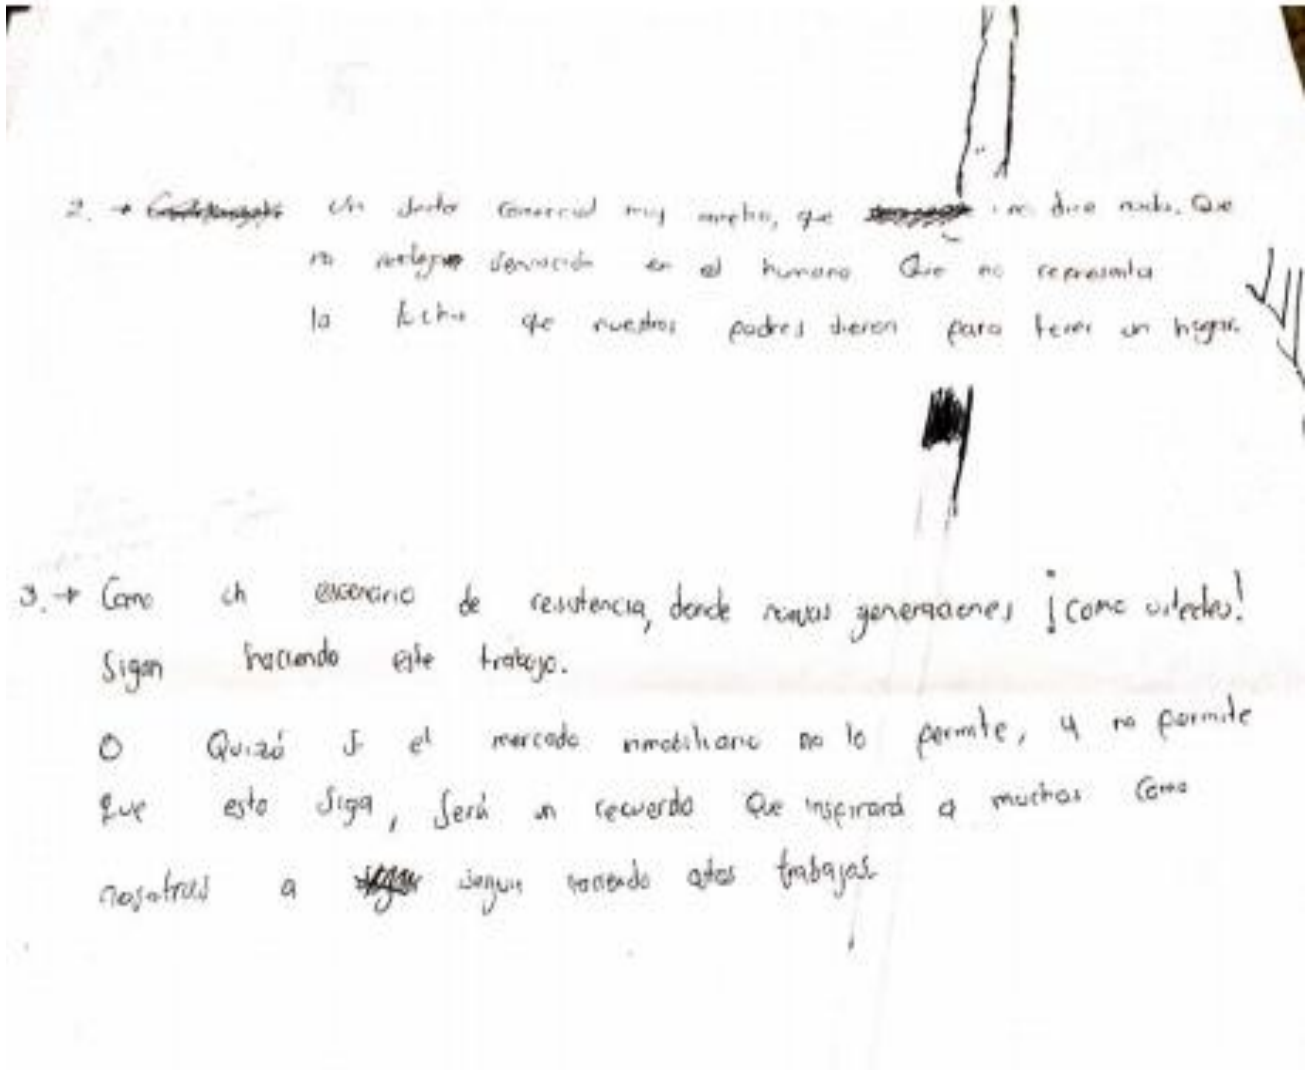 2. → Un sector comercial muy ancho, que no dice nada. Que
no sensación en el humano Que no representa
la lucha que nuestros padres dieron para tener un hogar.
3. → Como un escenario de resistencia, donde nuevas generaciones ¡como ustedes!
Sigan haciendo este trabajo.
O Quizá si el mercado inmobiliario no lo permite, y no permite
que esto siga, Será un recuerdo Que inspirará a muchas como
nosotras a seguir haciendo estos trabajos